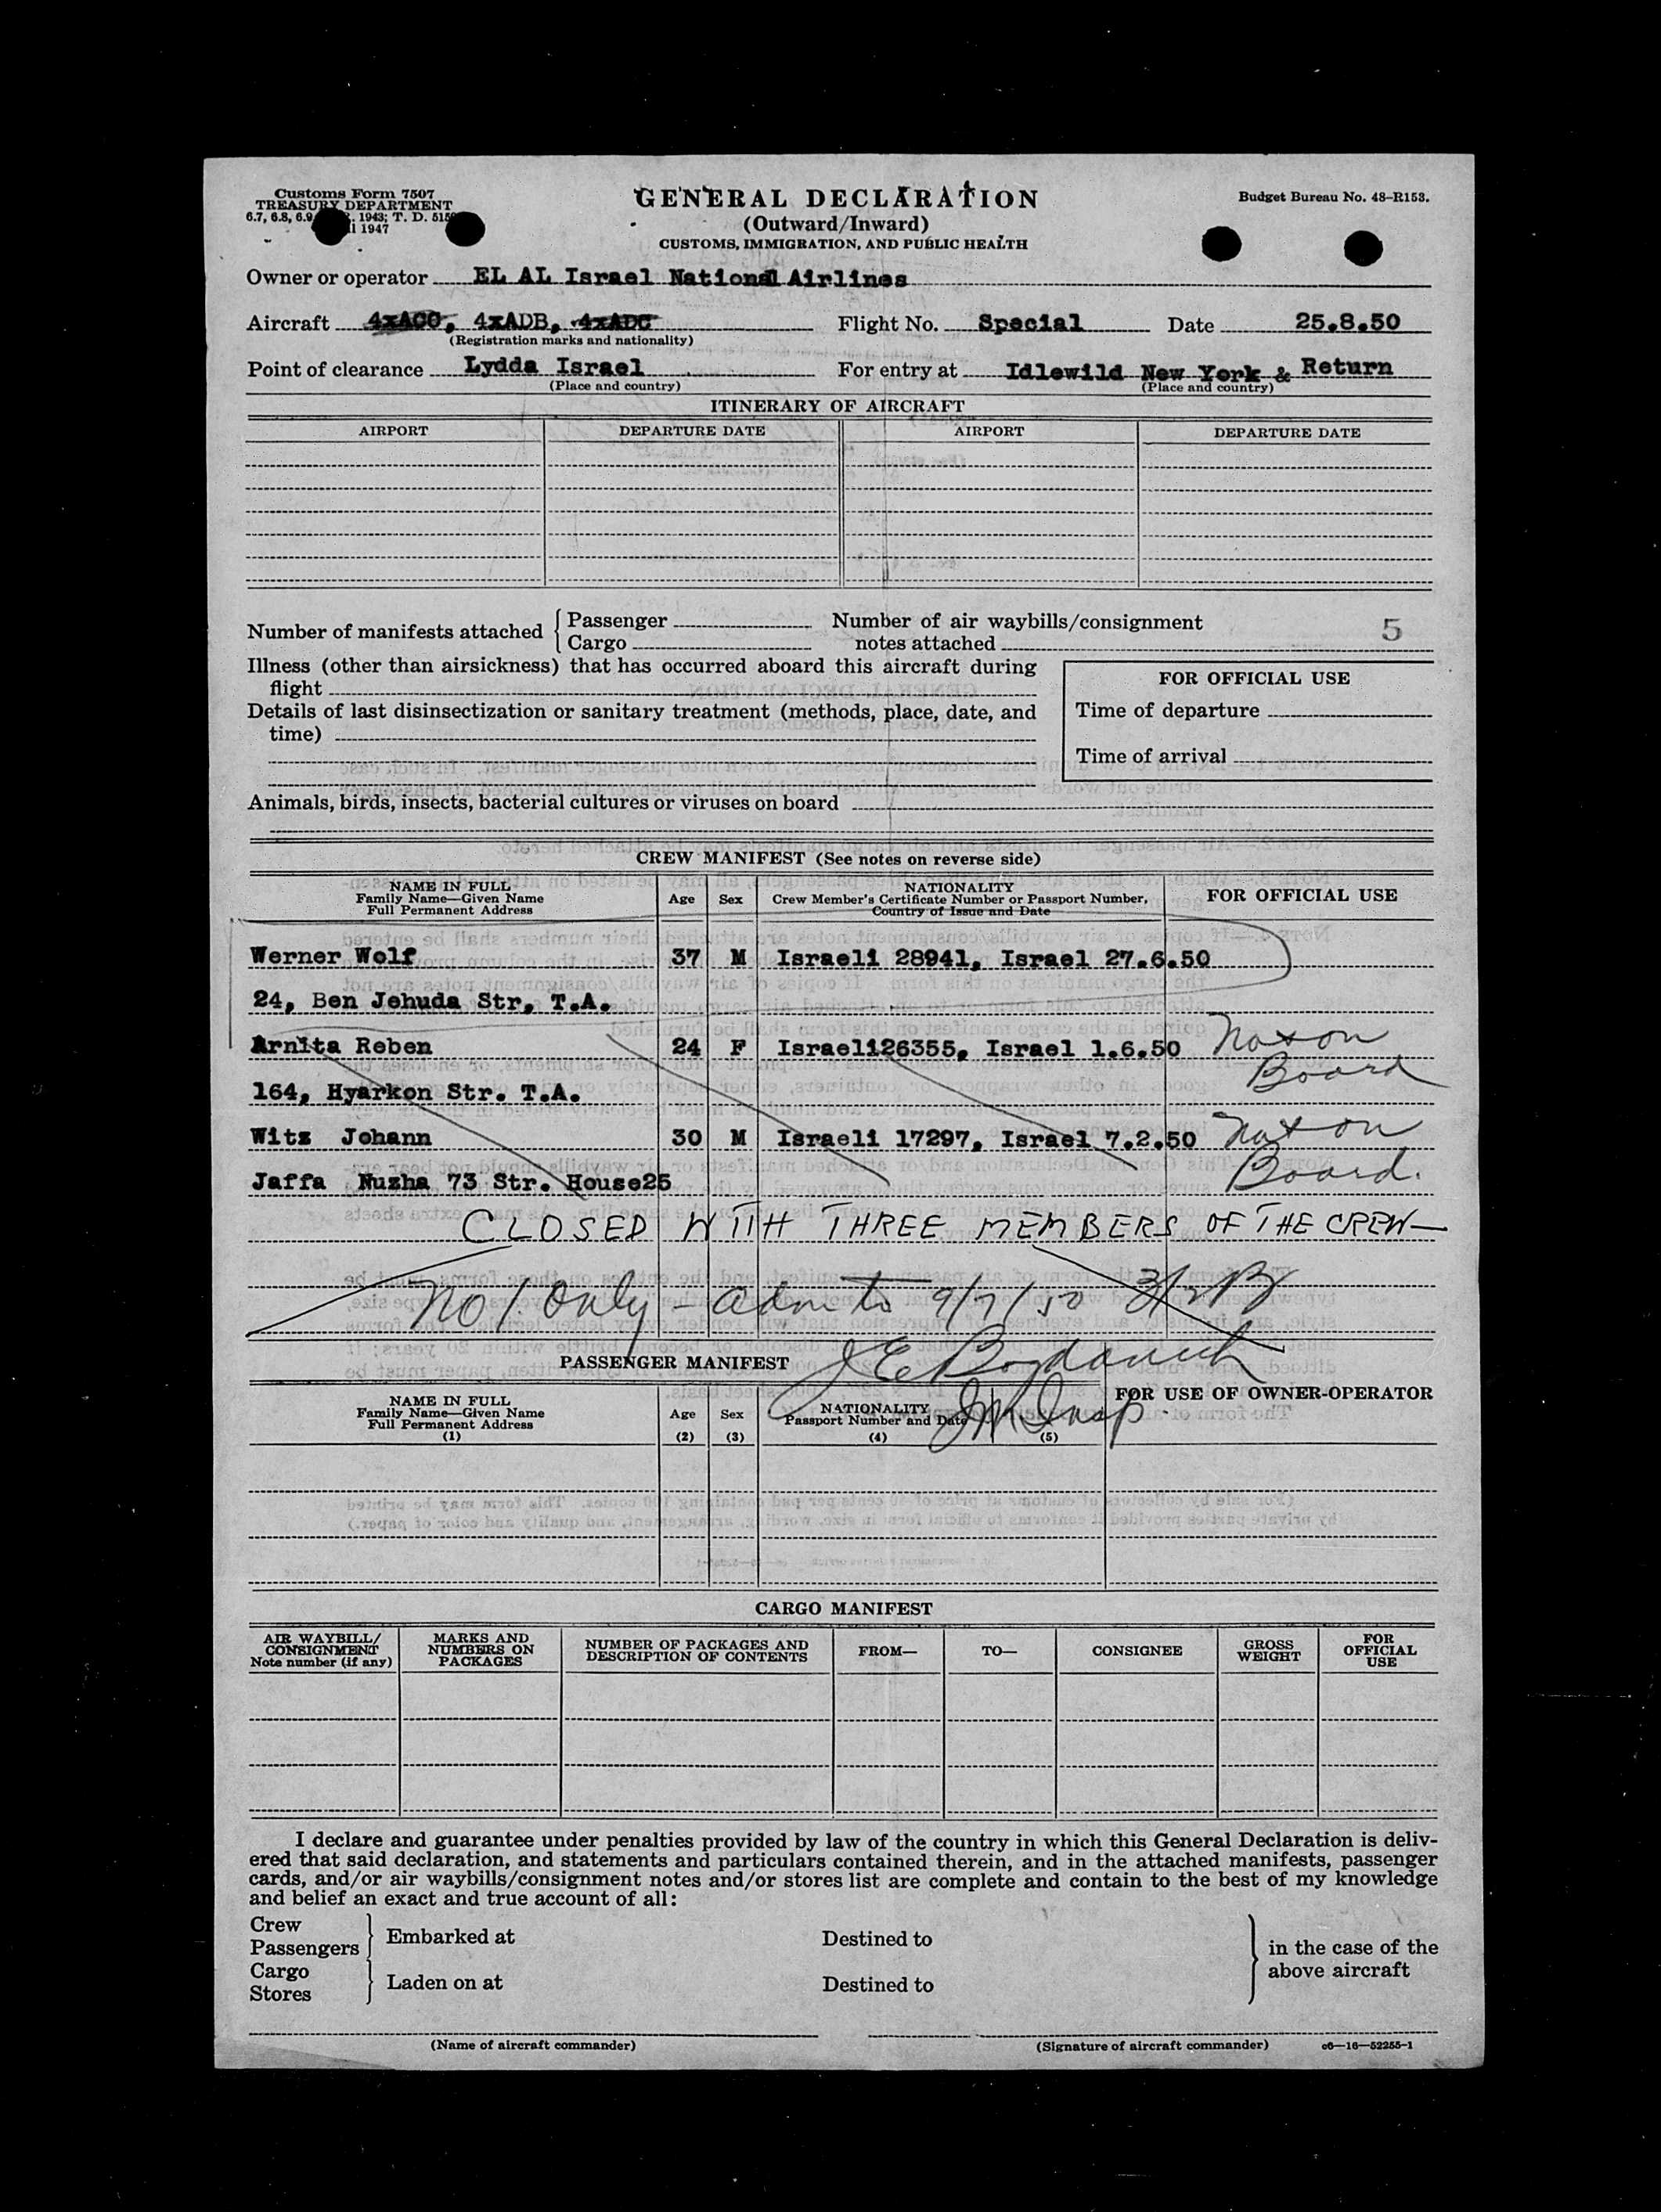 Customs Form 7507
TREASURY DEPARTMENT
6.7, 6.8, 6.9 1943; T. D.
1947
GENERAL DECLARATION
(Outward/Inward)
CUSTOMS, IMMIGRATION, AND PUBLIC HEALTH
Budget Bureau No. 48–R153.
Owner or operator EL AL Israel National Airlines
Aircraft 4xACO, 4xADB, 4xADC Flight No. Special Date 25.8.50
(Registration marks and nationality)
Point of clearance Lydda Israel For entry at Idlewild New York & Return
(Place and country) (Place and country)
ITINERARY OF AIRCRAFT
AIRPORT DEPARTURE DATE AIRPORT DEPARTURE DATE
Number of manifests attached { Passenger
Cargo
Number of air waybills/consignment
notes attached 5
Illness (other than airsickness) that has occurred aboard this aircraft during
flight
Details of last disinsectization or sanitary treatment (methods, place, date, and
time)
FOR OFFICIAL USE
Time of departure
Time of arrival
Animals, birds, insects, bacterial cultures or viruses on board
CREW MANIFEST (See notes on reverse side)
NAME IN FULL
Family Name—Given Name
Full Permanent Address
Age
Sex
NATIONALITY
Crew Member's Certificate Number or Passport Number,
Country of Issue and Date
FOR OFFICIAL USE
Werner Wolf 37 M Israeli 28941, Israel 27.6.50
24, Ben Jehuda Str, T.A.
Arnita Reben 24 F Israeli26355, Israel 1.6.50 Not on
164, Hyarkon Str. T.A. Board
Witz Johann 30 M Israeli 17297, Israel 7.2.50 Not on
Jaffa Nuzha 73 Str. House25 Board.
CLOSED WITH THREE MEMBERS OF THE CREW—
No 1. Only – Admit 9/7/50
J E Bogdanich
Insp.
PASSENGER MANIFEST
NAME IN FULL
Family Name—Given Name
Full Permanent Address
(1)
Age
(2)
Sex
(3)
NATIONALITY
Passport Number and Date
(4)
(5)
FOR USE OF OWNER-OPERATOR
CARGO MANIFEST
AIR WAYBILL/
CONSIGNMENT
Note number (if any)
MARKS AND
NUMBERS ON
PACKAGES
NUMBER OF PACKAGES AND
DESCRIPTION OF CONTENTS
FROM—
TO—
CONSIGNEE
GROSS
WEIGHT
FOR
OFFICIAL
USE
I declare and guarantee under penalties provided by law of the country in which this General Declaration is deliv-
ered that said declaration, and statements and particulars contained therein, and in the attached manifests, passenger
cards, and/or air waybills/consignment notes and/or stores list are complete and contain to the best of my knowledge
and belief an exact and true account of all:
Crew
Passengers } Embarked at Destined to
Cargo
Stores } Laden on at Destined to
} in the case of the
above aircraft
(Name of aircraft commander) (Signature of aircraft commander) c6—16—52255-1